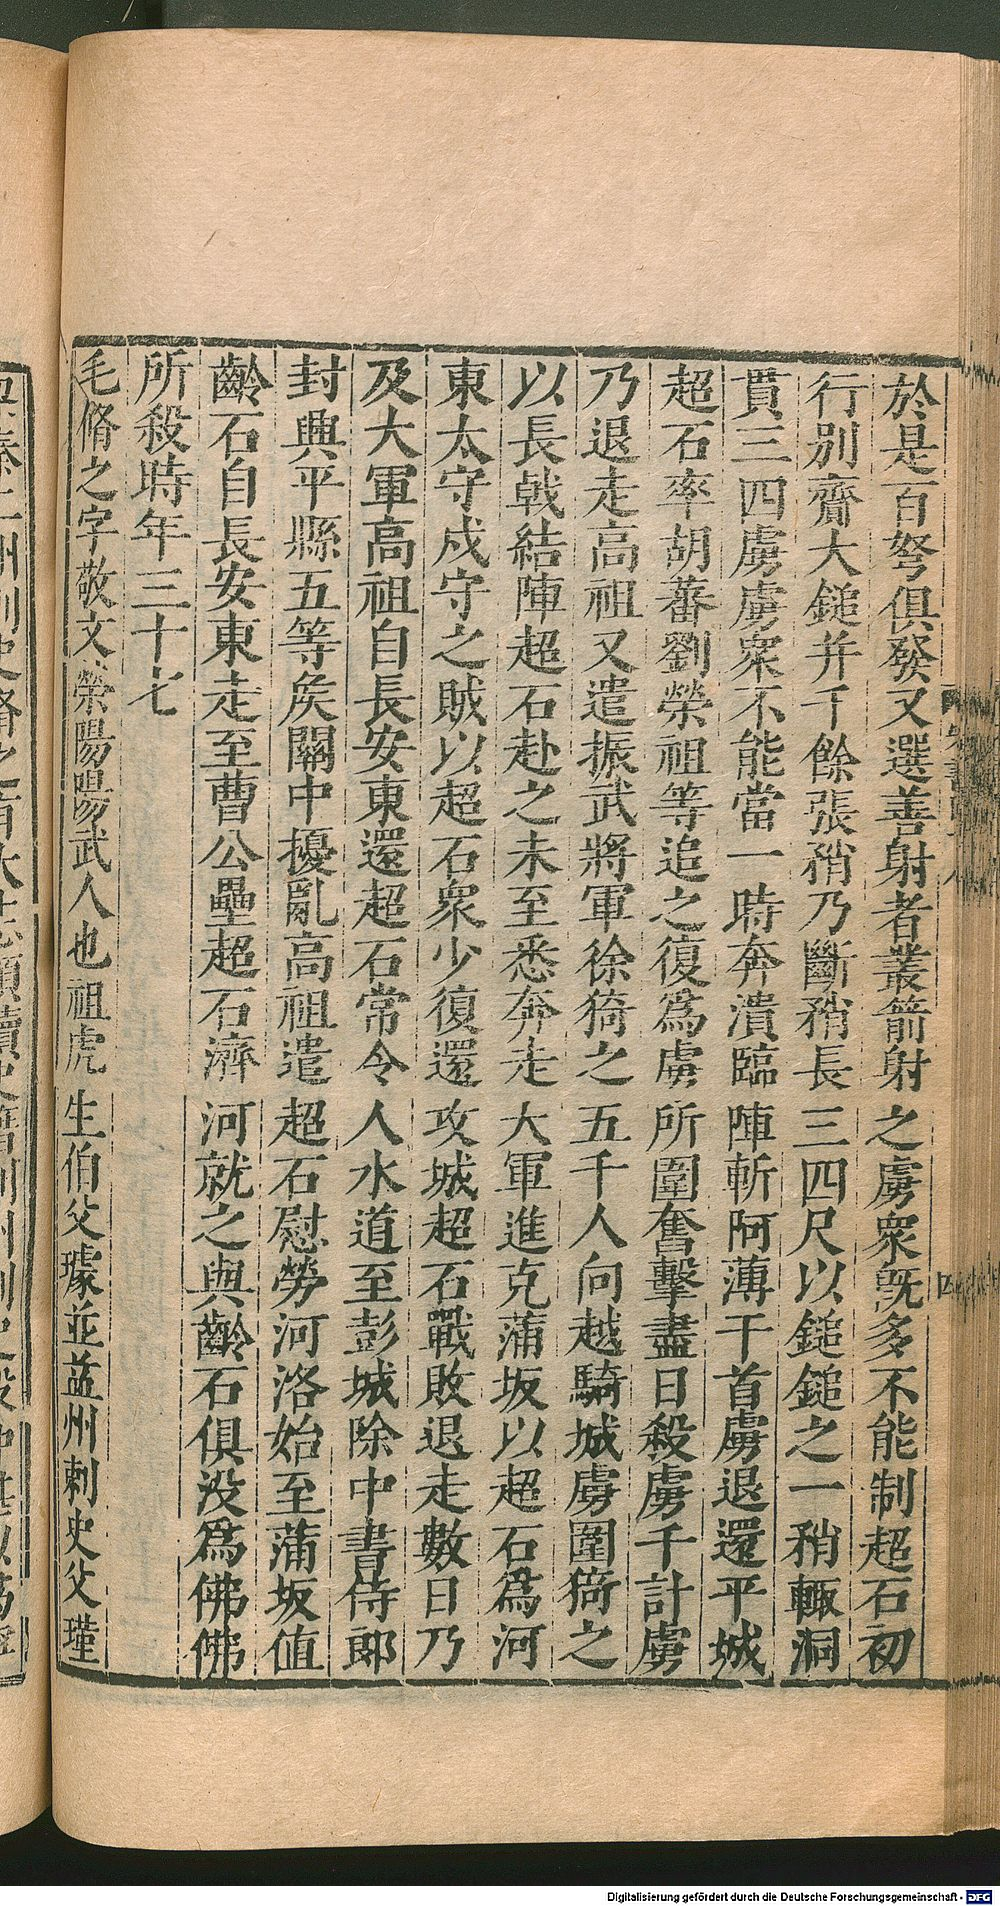 於是百弩俱發又選善射者叢箭射之虜衆旣多不能制超石初
行别齎大鎚并千餘張矟乃斷矟長三四尺以鎚鎚之一矟輒洞
貫三四虜虜衆不能當一時奔潰臨陣斬阿薄干首虜退還平城
超石率胡蕃劉榮祖等追之復爲虜所圍奮擊盡日殺虜千計虜
乃退走高祖又遣振武將軍徐猗之五千人向越騎城虜圍猗之
以長戟結陣超石赴之未至悉奔走大軍進克蒲坂以超石爲河
東太守戍守之賊以超石衆少復還攻城超石戰敗退走數日乃
及大軍高祖自長安東還超石常令人水道至彭城除中書侍郎
封興平縣五等矦關中擾亂高祖遣超石慰勞河洛始至蒲坂值
齡石自長安東走至曹公壘超石濟河就之與齡石俱没爲佛佛
所殺時年三十七
毛脩之字敬文滎陽陽武人也祖虎生伯父璩並益州刺史父瑾
Digitalisierung gefördert durch die Deutsche Forschungsgemeinschaft - DFG